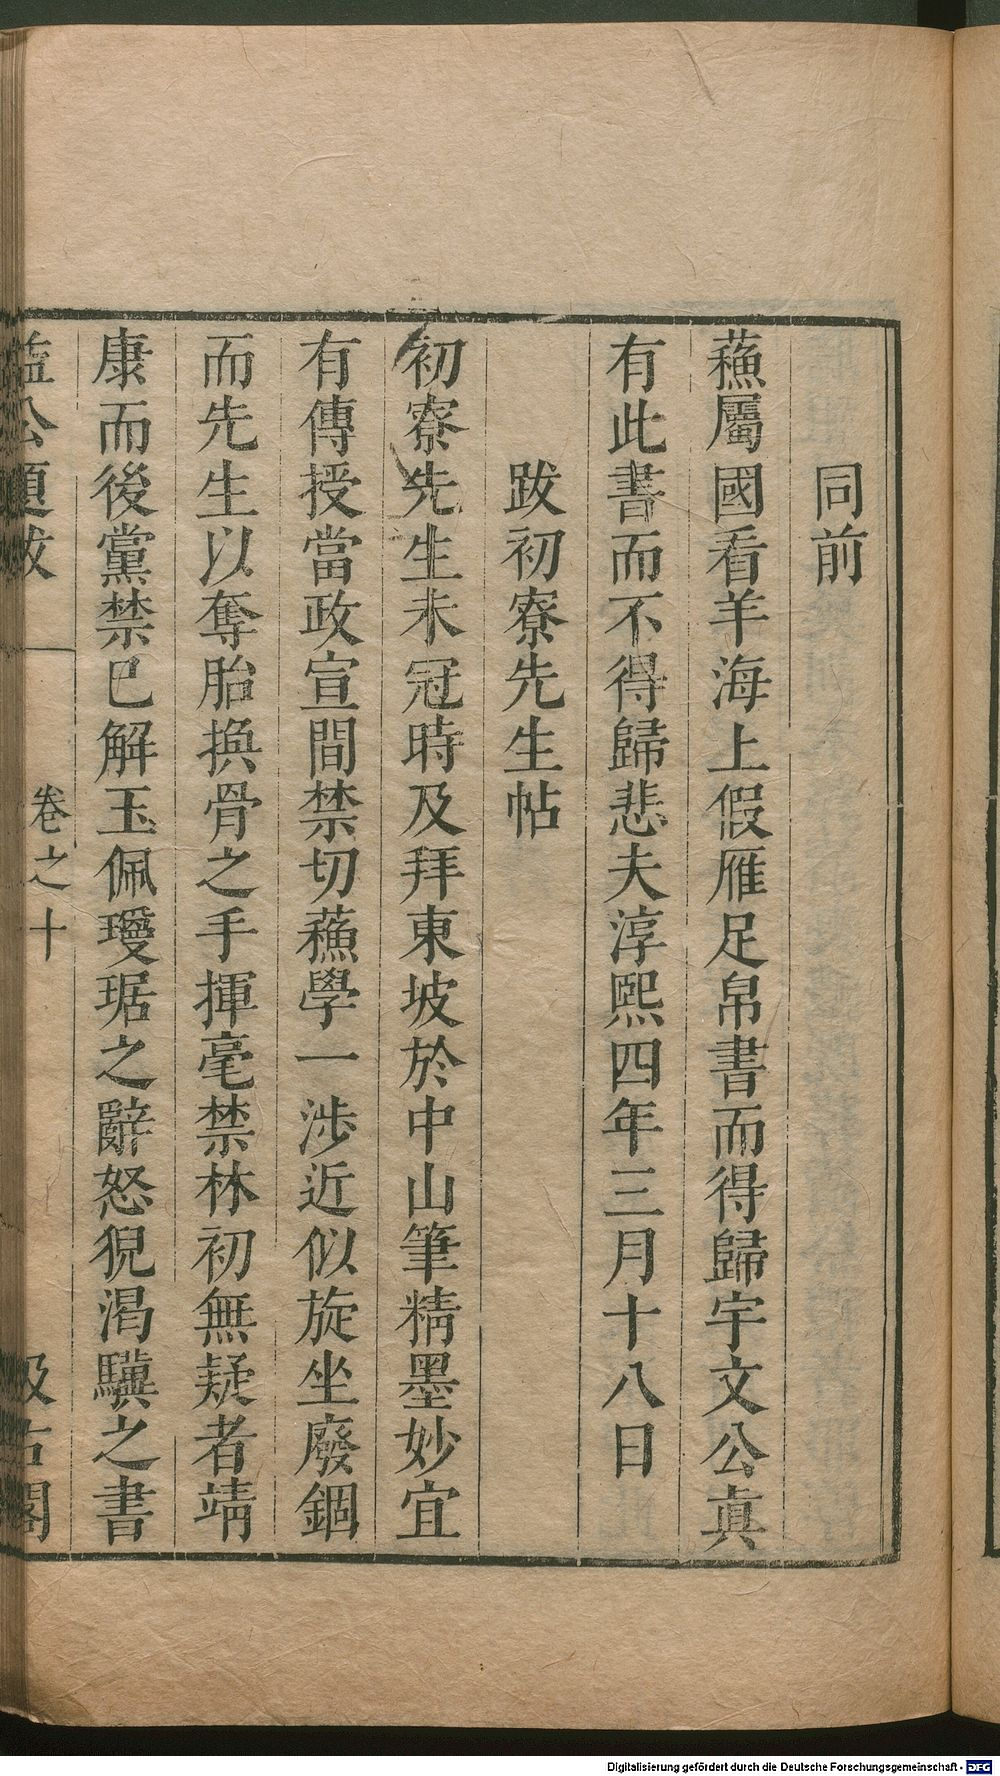 同前
蘓屬國看羊海上假雁足帛書而得歸宇文公眞
有此書而不得歸悲夫淳熙四年三月十八日
跋初寮先生帖
初寮先生未冠時及拜東坡於中山筆精墨妙宜
有傳授當政宣間禁切蘓學一涉近似旋坐廢錮
而先生以奪胎換骨之手揮毫禁林初無疑者靖
康而後黨禁巳解玉佩瓊琚之辭怒猊渴驥之書
益公題跋 卷之十 汲古閣
Digitalisierung gefördert durch die Deutsche Forschungsgemeinschaft - DFG